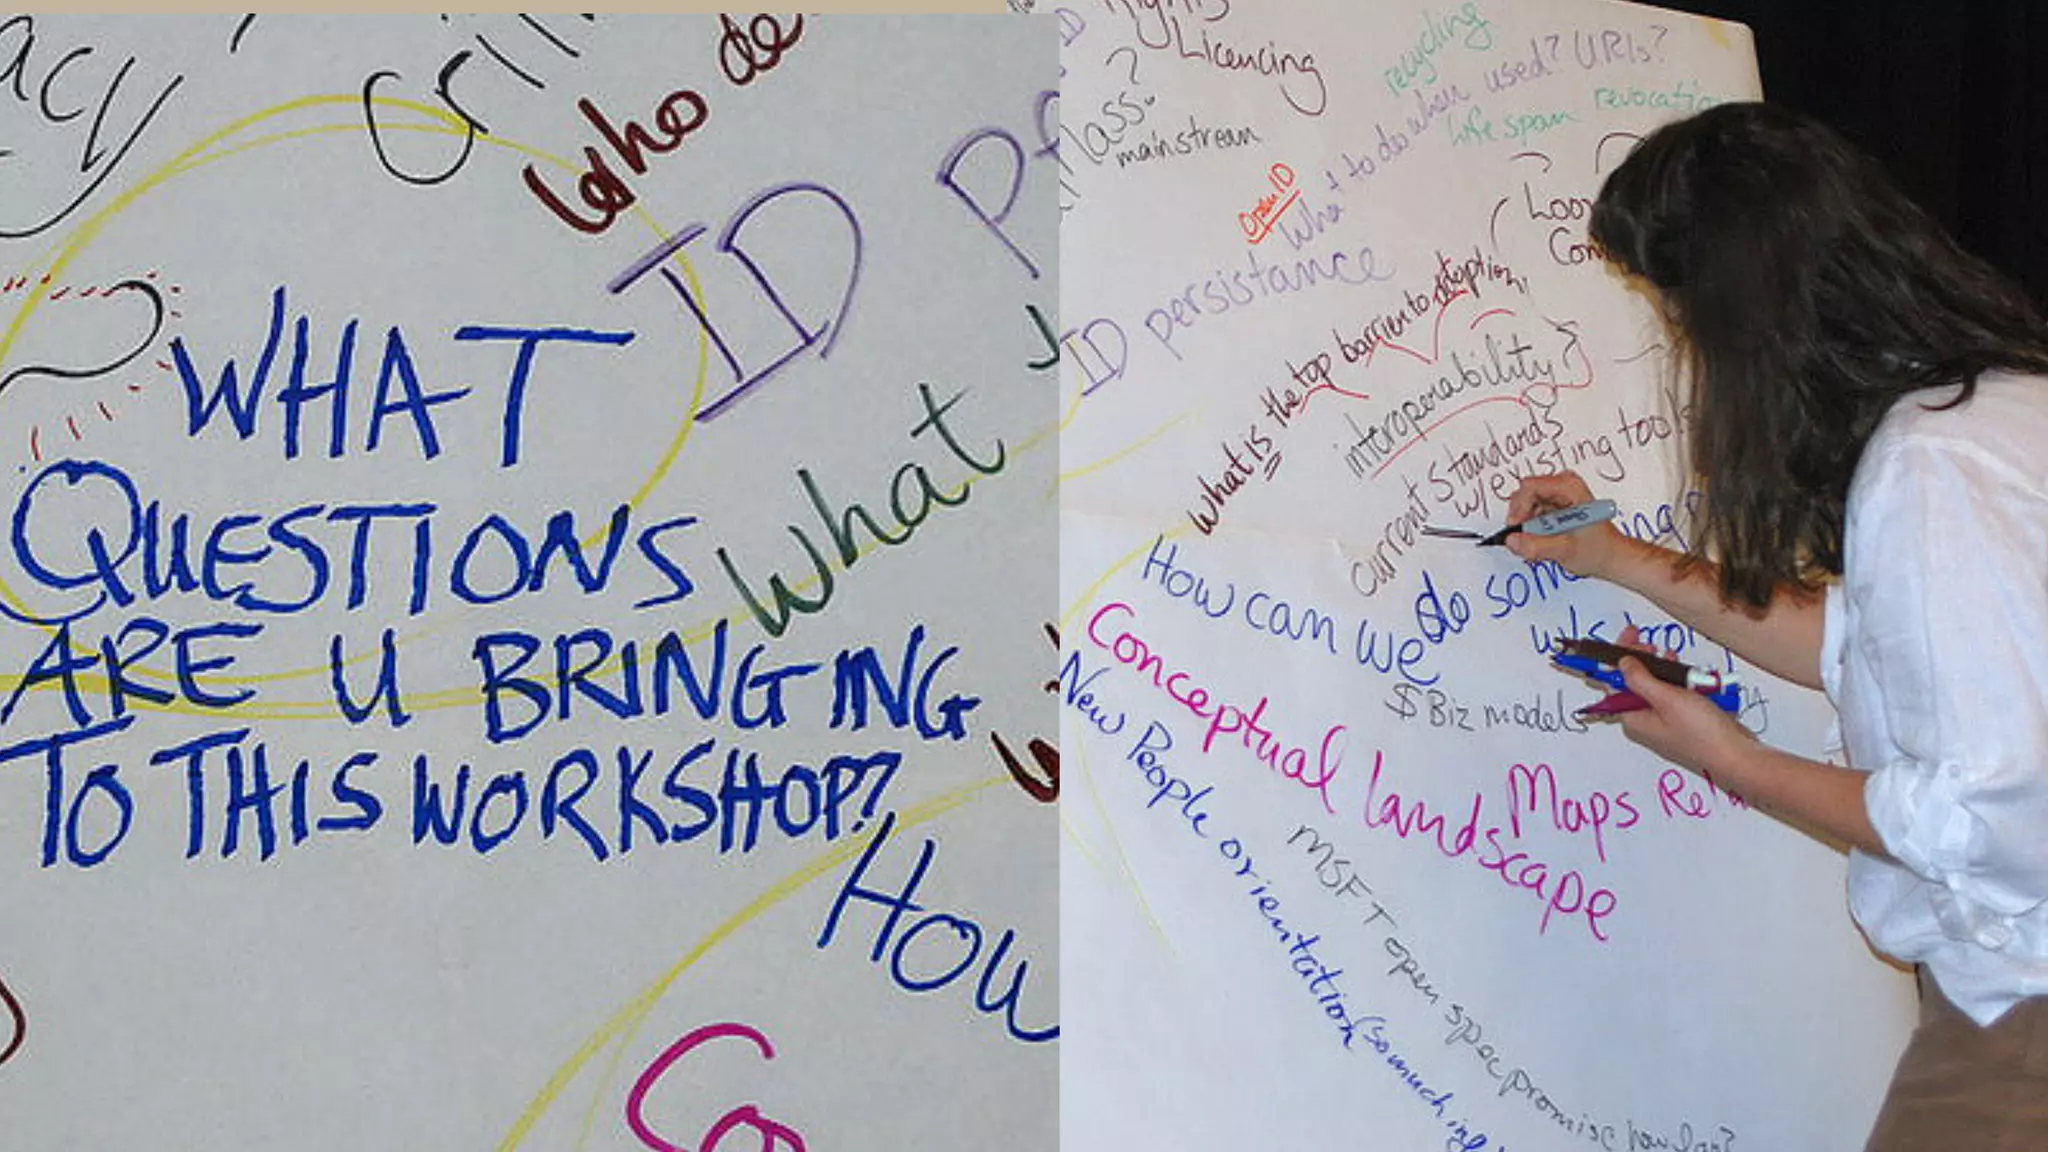 ID
WHAT
QUESTIONS
ARE U BRINGING
TO THIS WORKSHOP?
Who de
What
How
Co
Licencing
mainstream
recycling
What to do when used? URIs?
Life span
OpenID
ID persistance
What is the top barrier to adoption,
interoperability?
Current Standards
w/existing tools
How can we do
$ Biz models
Conceptual landscape
Maps
New People orientation (so much in
MSFT open spec promise how far?
Sharpie